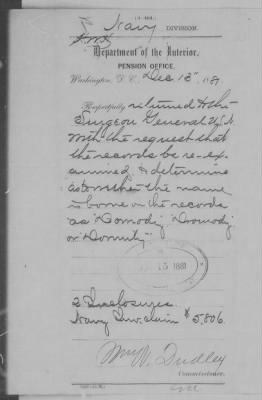 (3-464.)
Navy DIVISION.
Department of the Interior,
PENSION OFFICE,
Washington, D. C., Dec 13", 1881
Respectfully returned to the
Surgeon General U.S.N.
with the request that
the records be re-ex-
amined, & determine
as to whether the name
is borne on the records
as "Domody" "Dormody"
or "Dormity".
13 1881
2 Enclosures.
Navy Inv. claim $5,806.
Wm W. Dudley
Commissioner.